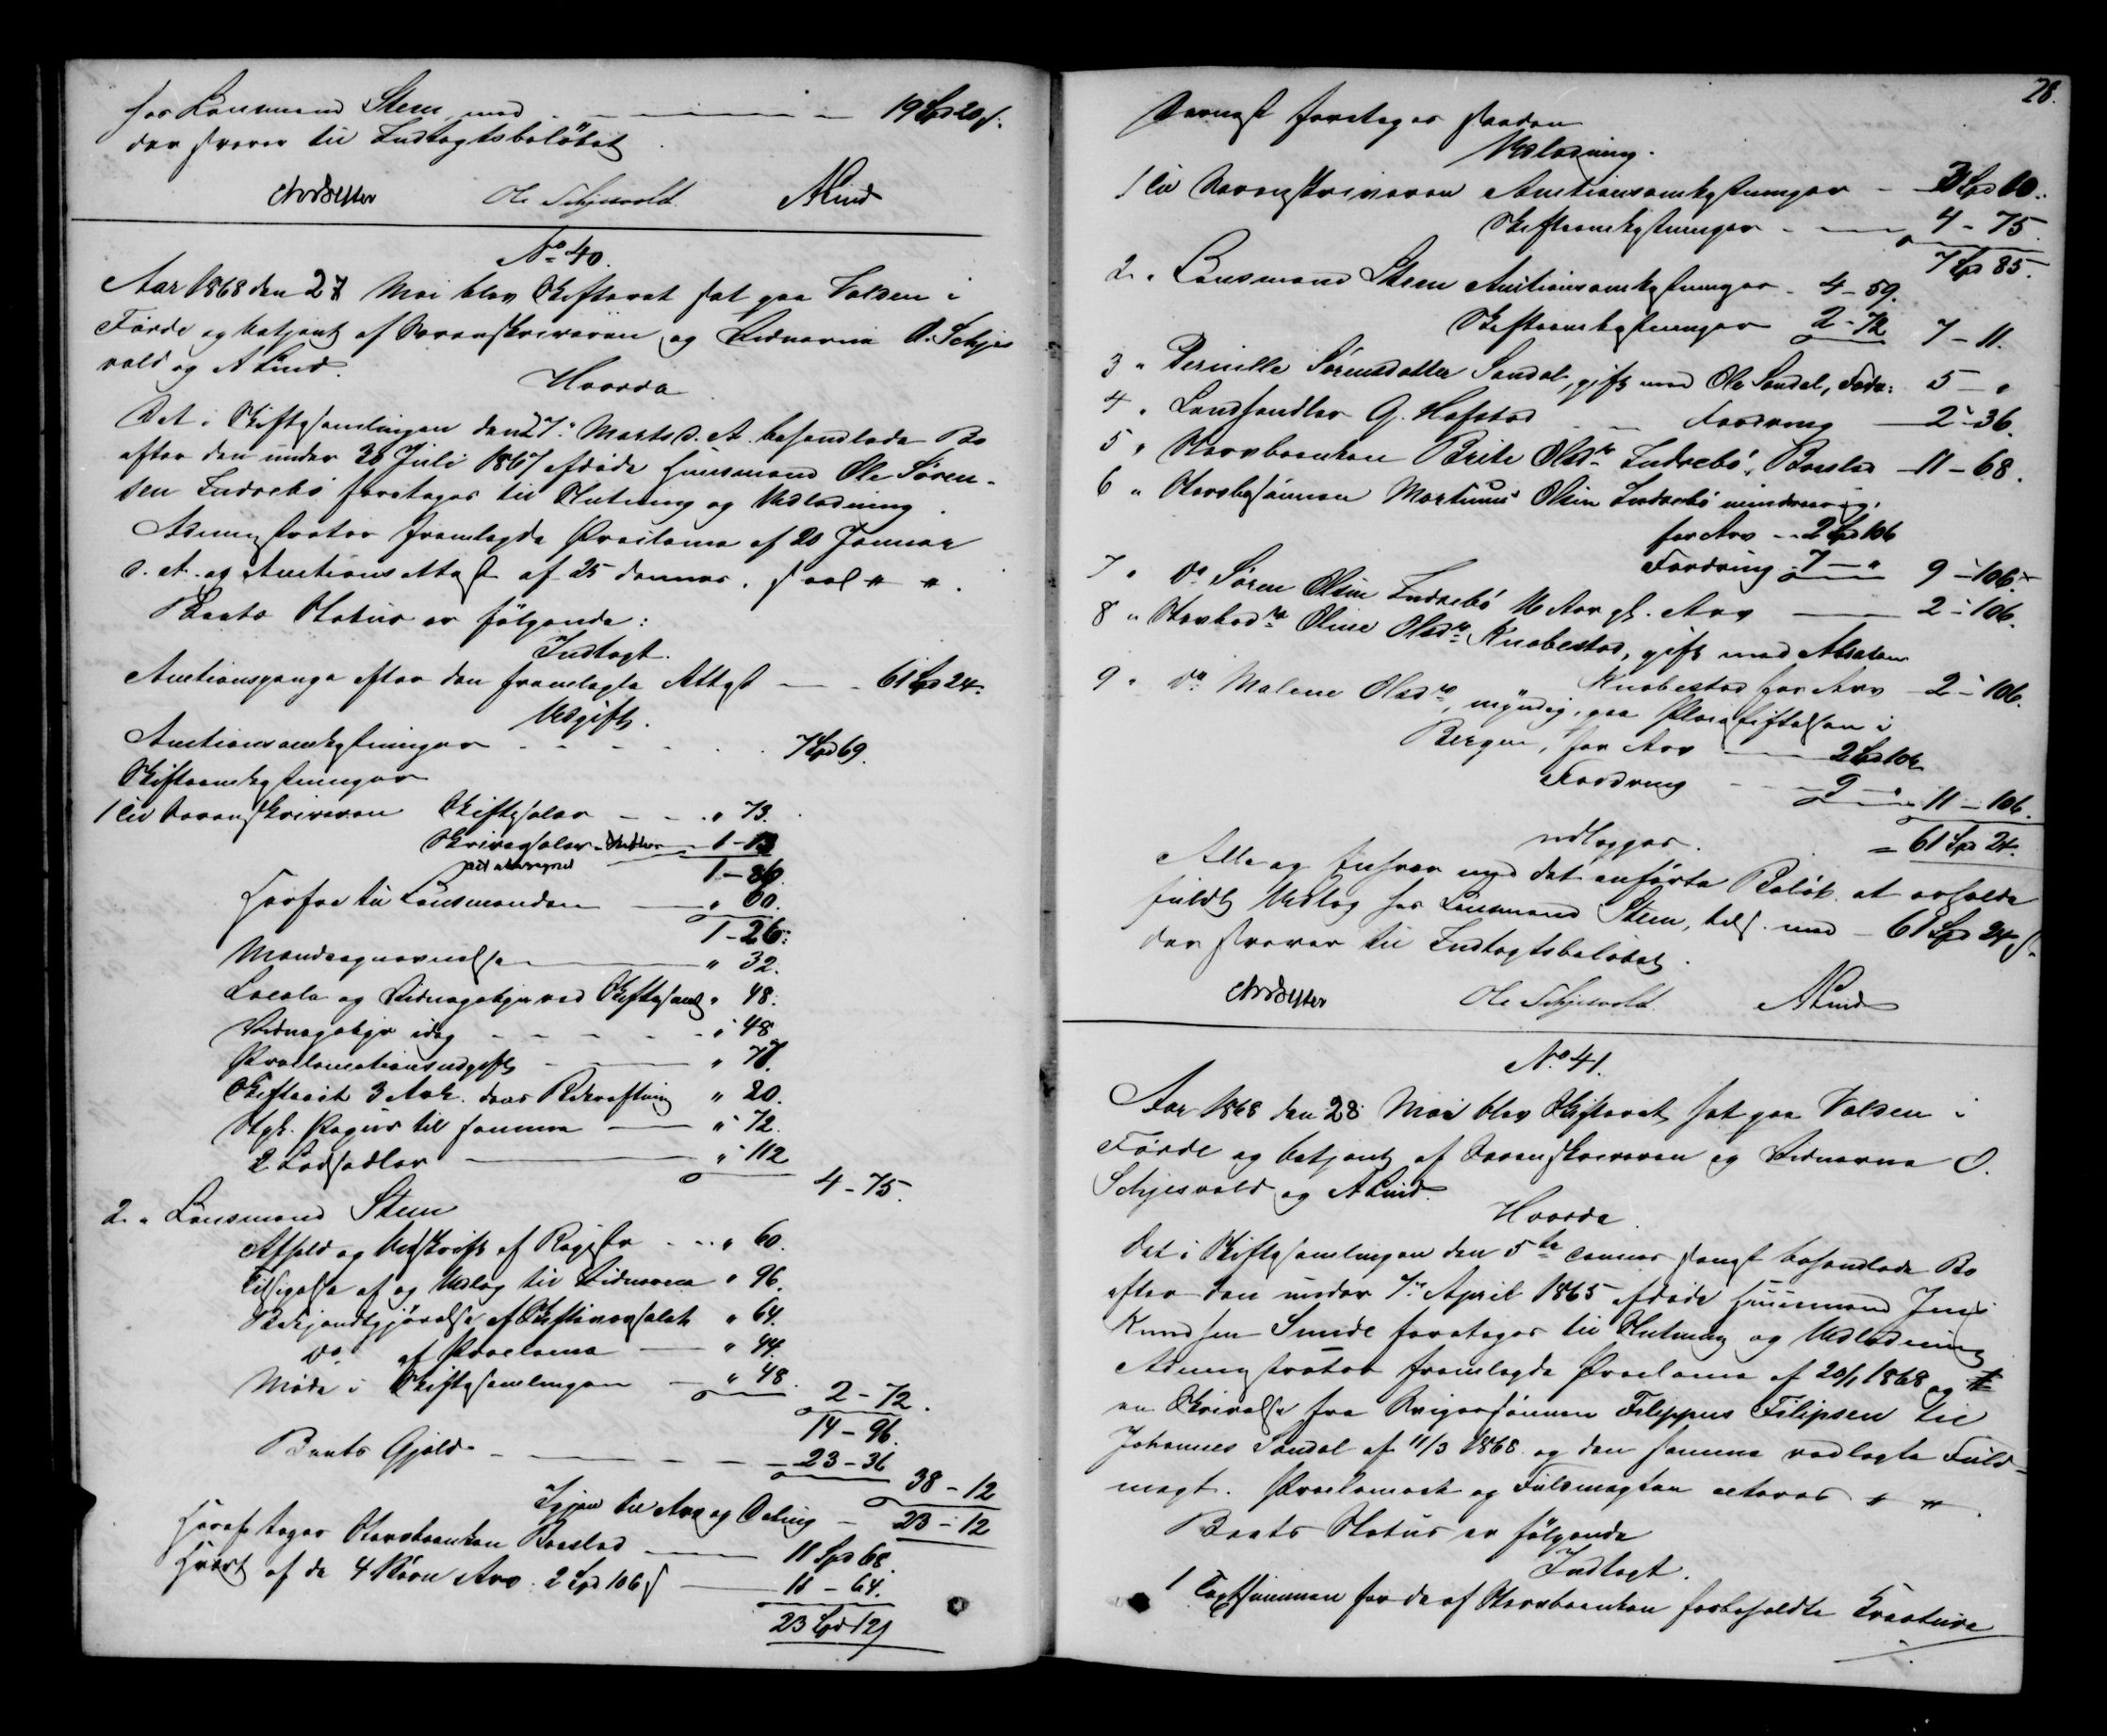 hos Lensmand Stem med - - - - 19 Spd 20 s.
der svarer til Indtægtsbeløbet.
Ole Schjesvold ALind
No 40.
Aar 1868 den 27 Mai blev Skifteret sat paa Valsen i
Førde og betjent af Sorenskriveren og Vidnerne O. Schjes
vold og A Lind.
Hvorda
Det i Skiftesamlingen den 27de Marts d. A. behandlede Bo
efter den under 30 Juli 1867 afdøde Huusmand Ole Søren-
sen Indrebø foretages til Slutning og Udlodning.
Administrator fremlagde Proclama af 20 Januar
d. A. og Auctions Attest af 25 dennes.
Boets Status er følgende:
Indtægt.
Auctionspenge efter den fremlagte Attest — 61 Spd 24.
Udgift.
Auctionsomkostninger - - - 7 Spd 69.
Skifteomkostninger
1 til Sorenskriveren Skiftesalær - - " 73.
Skriversalær 1-13
1-86.
Herfra til Lensmanden — " 60.
1-26.
Mandsopnævnelse — " 32.
Locale og Vidnegebyr ved Skiftesaml. " 48.
Vidnegebyr idag - - - " 48
Proclamationsudgift — " 77.
Skifteret 3 Ark. deres Bekræftning " 20.
Stpl. Papir til samme — " 72.
2 Lodsedler — " 112
4-75.
2. " Lensmand Stem
Afhold og Udskrift af Registr - - " 60.
Tilsigelse af og Udlæg til Vidnerne " 96.
Bekjendtgjørelse af Skifteindkaldelse " 64.
do af Proclama — " 44.
Møde i Skiftesamlingen — " 48.
2-72.
14-96.
Boets Gjæld - - - 23-36
38-12
Igjen til Arv og Deling - 23-12
Heraf tager Stervboenken Boeslod — 11 Spd 68.
Hvert af de 4 Børn Arv: 2 Spd 106 s — 11-64.
23 Spd 12 s
28.
Dernæst foretages saadan
Udlodning.
1 til Sorenskriveren Auctionsomkostninger - 3 Spd 10.
Skifteomkostninger - — 4-75.
7 Spd 85.
2. " Lensmand Stem Auctionsomkostninger - 4-59.
Skifteomkostninger 2-72 7-11.
3 " Pernille Sørensdatter Sandal, gift med Ole Sandal, Fodr: 5-"
4 " Landhandler G. Hafstad - - Fordring — 2-36.
5 " Stervboenken Brite Olsdr Indrebø, Boeslod - 11-68.
6 " Stervbosønnen Martinus Olsen Indrebø mindreaarig,
for Arv - 2 Spd 106
Fordring 7-" 9-106.
7 " do Søren Olsen Indrebø Aar gl. Arv — 2-106.
8 " Stervbodr Oline Olsdr Knabestad, gift med Absalon
Knabestad for Arv - 2-106.
9 " do Malene Olsdr, myndig, paa Pleiestiftelsen i
Bergen, for Arv — 2 Spd 106
Fordring - - 9-" 11-106.
= 61 Spd 24.
udlægges.
Alle og Enhver med det anførte Beløb at erholde
fuldt Udlæg hos Lensmand Stem, tils. med - 61 Spd 24 s.
der svarer til Indtægtsbeløbet.
Ole Schjesvold ALind
No 41.
Aar 1868 den 28 Mai blev Skifteret sat paa Valsen i
Førde og betjent af Sorenskriveren og Vidnerne O.
Schjesvold og A Lind.
Hvorda
Det i Skiftesamlingen den 5te dennes sidst behandlede Bo
efter den under 7de April 1865 afdøde Huusmand Jens
Knudsen Sunde foretages til Slutning og Udlodning
Administrator fremlagde Proclama af 20/1 1868 og
en Skrivelse fra Svigersønnen Filippus Filipsen til
Johannes Sandal af 11/3 1868 og den samme vedlagte Fuld-
magt. Proclamaet og Fuldmagten acteres " "
Boets Status er følgende
Indtægt.
1 Taxtsummen for de af Stervboenken forbeholdte Kreature